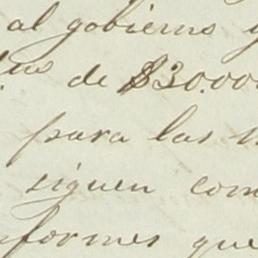 al gobierno y
de $30.000
para las
siguen com
formes que